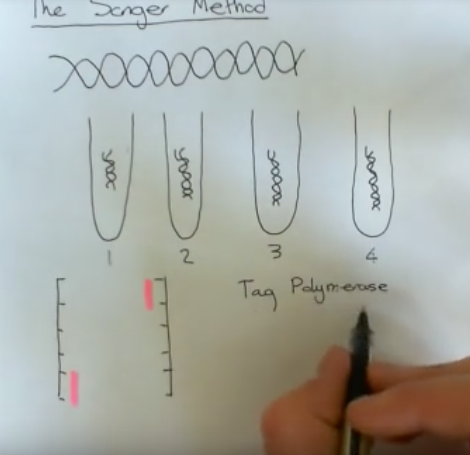 The Sanger Method
1 2 3 4
Taq Polymerase